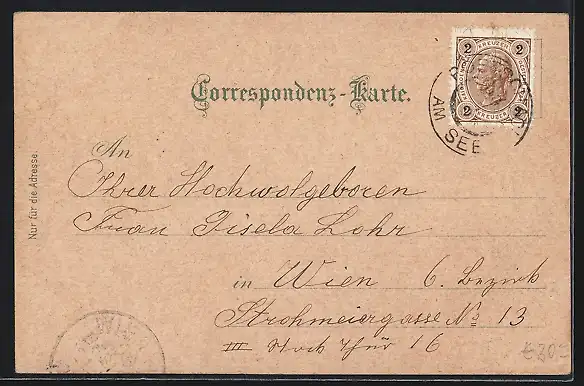 2 KREUZER 2
2 KREUZER 2
AM SEE
Correspondenz-Karte.
Nur für die Adresse.
An
Ihrer Hochwolgeboren
Frau Gisela Lohr
in Wien 6. Bezirk
Strohmeiergasse No 13
III Stock Thür 16